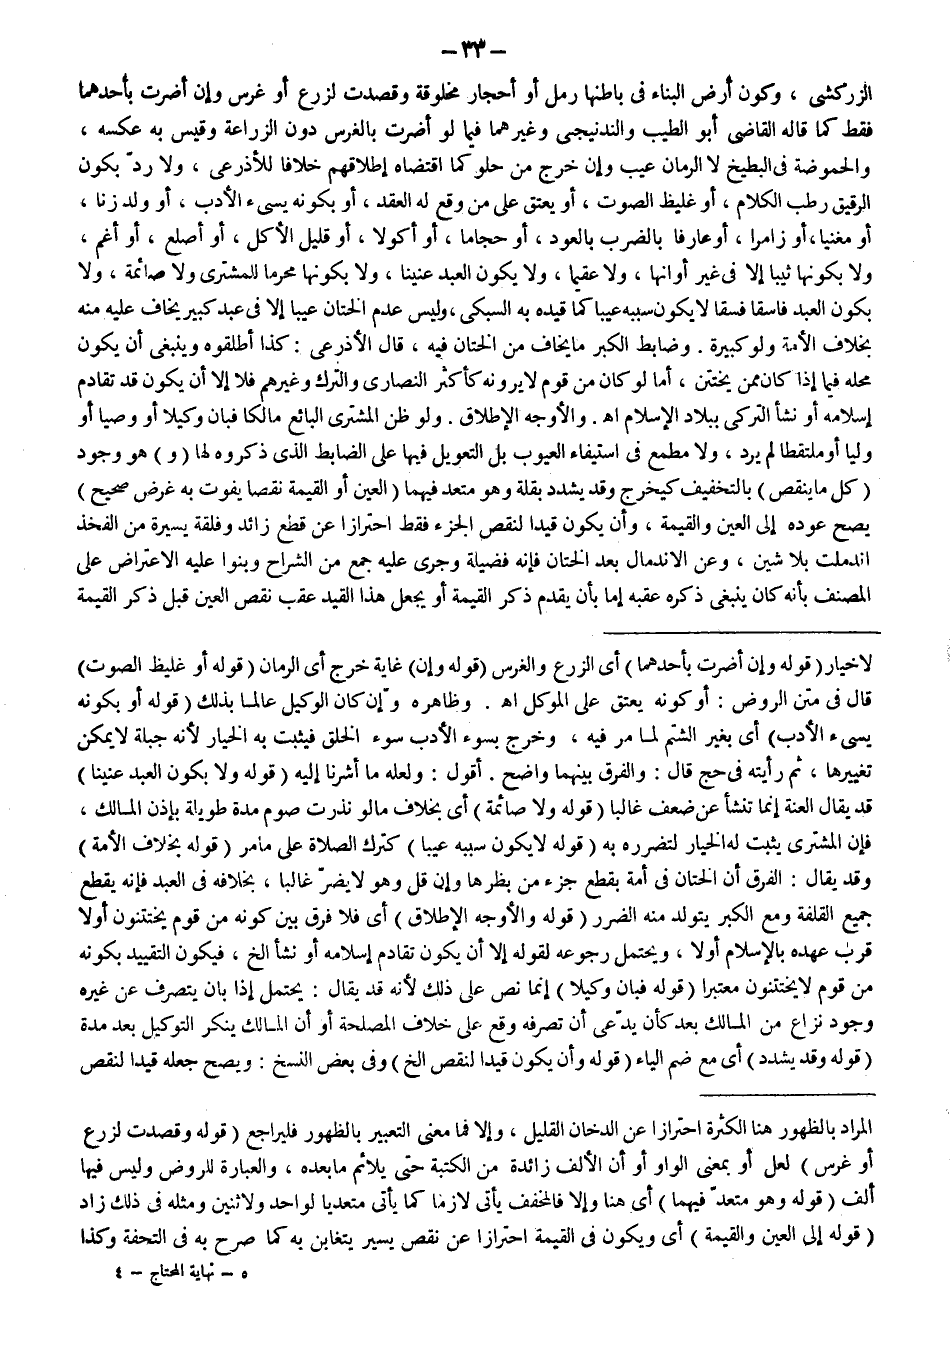 – ٣٣ –
الزركشى ، وكون أرض البناء فى باطنها رمل أو أحجار مخلوقة وقصدت لزرع أو غرس وإن أضرت بأحدهما
فقط كما قاله القاضى أبو الطيب والبندنيجى وغيرهما فيما لو أضرت بالغرس دون الزراعة وقيس به عكسه ،
والحموضة فى البطيخ لا الرمان عيب وإن خرج من حلو كما اقتضاه إطلاقهم خلافا للأذرعى ، ولا ردّ بكون
الرقيق رطب الكلام ، أو غليظ الصوت ، أو يعتق على من وقع له العقد ، أو بكونه يسىء الأدب ، أو ولد زنا ،
أو مغنيا ، أو زامرا ، أو عارفا بالضرب بالعود ، أو حجاما ، أو أكولا ، أو قليل الأكل ، أو أصلع ، أو أغم ،
ولا بكونها ثيبا إلا فى غير أوانها ، ولا عقيما ، ولا بكون العبد عنينا ، ولا بكونها محرما للمشترى ولا صائمة ، ولا
بكون العبد فاسقا فسقا لا يكون سببه عيبا كما قيده به السبكى ، وليس عدم الختان عيبا إلا فى عبد كبير يخاف عليه منه
بخلاف الأمة ولو كبيرة . وضابط الكبر مايخاف من الختان فيه ، قال الأذرعى : كذا أطلقوه وينبغى أن يكون
محله فيما إذا كان ممن يختتن ، أما لو كان من قوم لايرونه كأكثر النصارى والترك وغيرهم فلا إلا أن يكون قد تقادم
إسلامه أو نشأ التركى ببلاد الإسلام اهـ . والأوجه الإطلاق . ولو ظن المشترى البائع مالكا فبان وكيلا أو وصيا أو
وليا أو ملتقطا لم يرد ، ولا مطمع فى استيفاء العيوب بل التعويل فيها على الضابط الذى ذكروه لها ( و ) هو وجود
( كل ماينقص ) بالتخفيف كيخرج وقد يشدد بقلة وهو متعد فيهما ( العين أو القيمة نقصا يفوت به غرض صحيح )
يصح عوده إلى العين والقيمة ، وأن يكون قيدا لنقص الجزء فقط احترازا عن قطع زائد وفلقة يسيرة من الفخذ
اندملت بلا شين ، وعن الاندمال بعد الختان فإنه فضيلة وجرى عليه جمع من الشراح وبنوا عليه الاعتراض على
المصنف بأنه كان ينبغى ذكره عقبه إما بأن يقدم ذكر القيمة أو يجعل هذا القيد عقب نقص العين قبل ذكر القيمة
لاخيار ( قوله وإن أضرت بأحدهما ) أى الزرع والغرس (قوله وإن) غاية خرج أى الرمان (قوله أو غليظ الصوت)
قال فى متن الروض : أو كونه يعتق على الموكل اهـ . وظاهره وإن كان الوكيل عالما بذلك ( قوله أو بكونه
يسىء الأدب) أى بغير الشتم لما مر فيه ، وخرج بسوء الأدب سوء الخلق فيثبت به الخيار لأنه جبلة لايمكن
تغييرها ، ثم رأيته فى حج قال : والفرق بينهما واضح . أقول : ولعله ما أشرنا إليه ( قوله ولا بكون العبد عنينا )
قد يقال العنة إنما تنشأ عن ضعف غالبا ( قوله ولا صائمة ) أى بخلاف مالو نذرت صوم مدة طويلة بإذن المالك ،
فإن المشترى يثبت له الخيار لتضرره به ( قوله لايكون سببه عيبا ) كترك الصلاة على مامر ( قوله بخلاف الأمة )
وقد يقال : الفرق أن الختان فى أمة بقطع جزء من بظرها وإن قل وهو لايضرّ غالبا ، بخلافه فى العبد فإنه يقطع
جميع القلفة ومع الكبر يتولد منه الضرر ( قوله والأوجه الإطلاق ) أى فلا فرق بين كونه من قوم يختتنون أولا
قرب عهده بالإسلام أولا ، ويحتمل رجوعه لقوله إلا أن يكون تقادم إسلامه أو نشأ الخ ، فيكون التقييد بكونه
من قوم لايختتنون معتبرا ( قوله فبان وكيلا ) إنما نص على ذلك لأنه قد يقال : يحتمل إذا بان يتصرف عن غيره
وجود نزاع من المالك بعد كأن يدّعى أن تصرفه وقع على خلاف المصلحة أو أن المالك ينكر التوكيل بعد مدة
( قوله وقد يشدد ) أى مع ضم الياء ( قوله وأن يكون قيدا لنقص الخ ) وفى بعض النسخ : ويصح جعله قيدا لنقص
المراد بالظهور هنا الكثرة احترازا عن الدخان القليل ، وإلا فما معنى التعبير بالظهور فليراجع ( قوله وقصدت لزرع
أو غرس ) لعل أو بمعنى الواو أو أن الألف زائدة من الكتبة حتى يلائم مابعده ، والعبارة للروض وليس فيها
ألف ( قوله وهو متعدّ فيهما ) أى هنا وإلا فالمخفف يأتى لازما كما يأتى متعديا لواحد ولاثنين ومثله فى ذلك زاد
( قوله إلى العين والقيمة ) أى ويكون فى القيمة احترازا عن نقص يسير يتغابن به كما صرح به فى التحفة وكذا
٥ – نهاية المحتاج – ٤